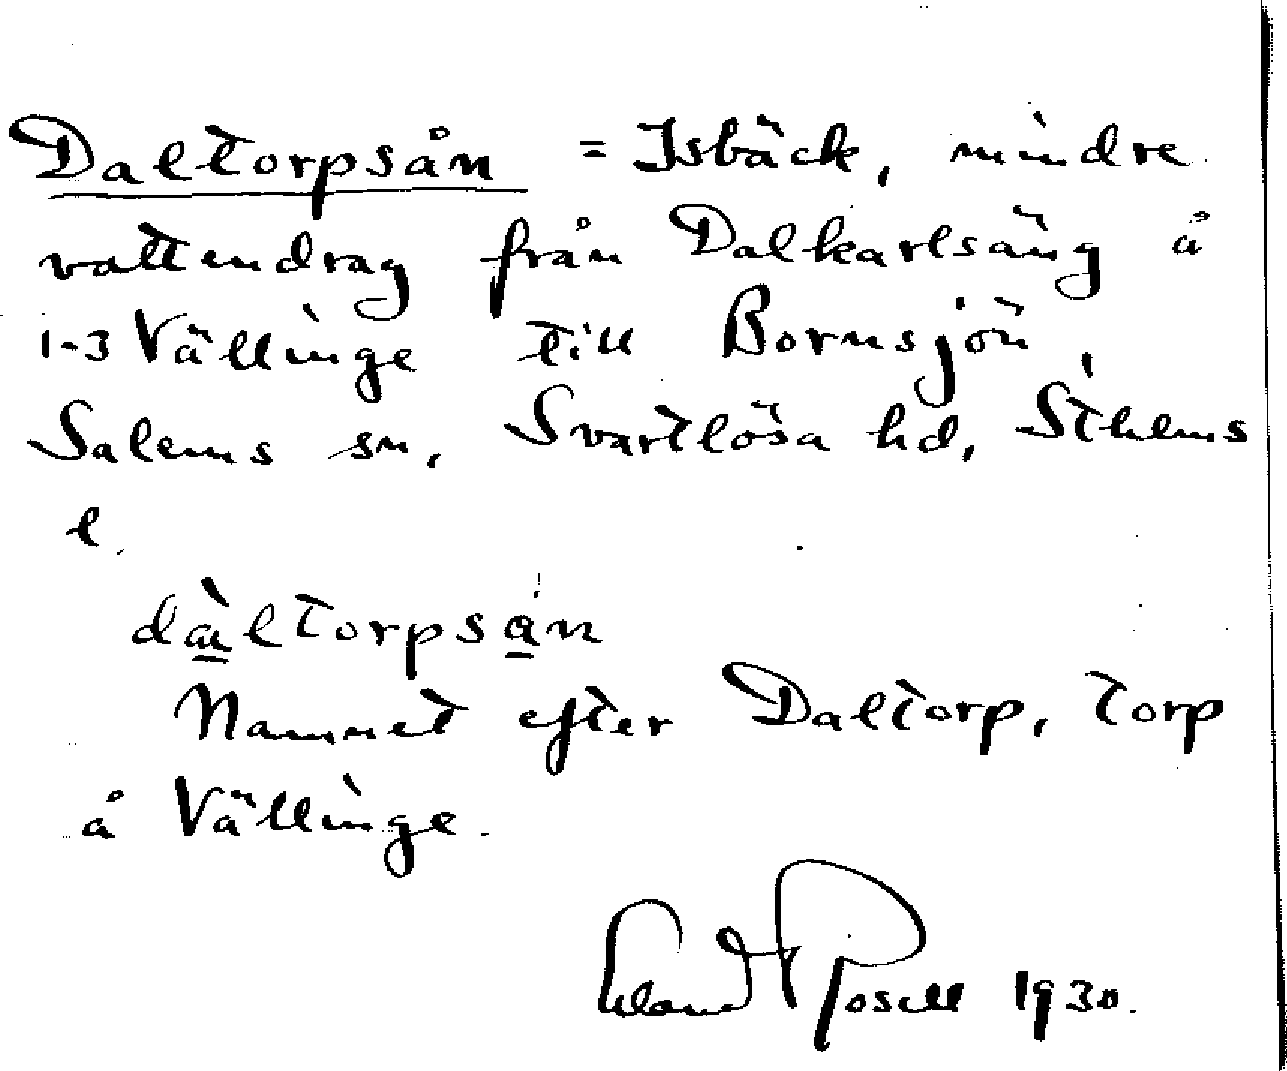 Daltorpsån = Isbäck, mindre
vattendrag från Dalkarlsäng å
1-3 Vällinge till Bornsjön,
Salems sn, Svartlösa hd, Sthlms
l.
dàltorpsån
Namnet efter Daltorp, torp
å Vällinge.
Rosell 1930.